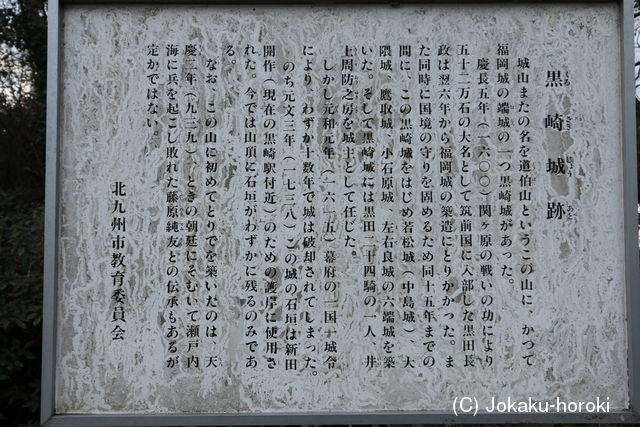 黒崎城跡
くろさきじょうあと
城山またの名を道伯山というこの山に、かつて
福岡城の端城の一つ黒崎城があった。
慶長五年(一六〇〇)関ヶ原の戦いの功により
五十二万石の大名として筑前国に入部した黒田長
政は翌六年から福岡城の築造にとりかかった。ま
た同時に国境の守りを固めるため同十五年までの
間に、この黒崎城をはじめ若松城(中島城)、大
隈城、鷹取城、小石原城、左右良城の六端城を築
いた。そして黒崎城には黒田二十四騎の一人、井
上周防之房を城主として任じた。
しかし元和元年(一六一五)幕府の一国一城令
により、わずか十数年で城は破却されてしまった。
のち元文三年(一七三八)この城の石垣は新田
開作(現在の黒崎駅付近)のための護岸に使用さ
れた。今では山頂に石垣がわずかに残るのみであ
る。
なお、この山に初めてとりでを築いたのは、天
慶二年(九三九)、ときの朝廷にそむいて瀬戸内
海に兵を起こし敗れた藤原純友との伝承もあるが
定かではない。
北九州市教育委員会
(C) Jokaku-horoki